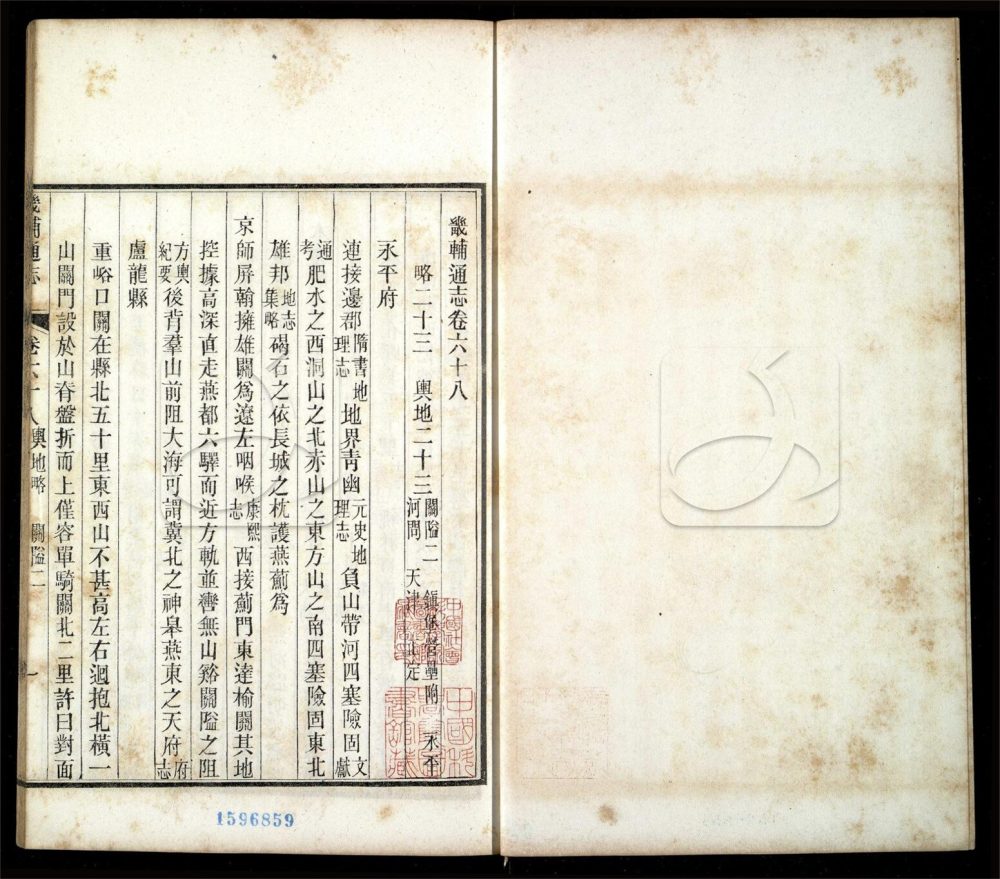 畿輔通志卷六十八
略二十三 輿地二十三 關隘二 鎮堡營壘附 永平
河間 天津 正定
永平府
連接邊郡隋書地理志地界青幽元史地理志負山帶河四塞險固文獻
通考肥水之西洞山之北赤山之東方山之南四塞險固東北
雄邦地志集略碣石之依長城之枕護燕薊爲
京師屏翰擁雄關爲遼左咽喉康熙志西接薊門東達榆關其地
控據高深直走燕都六驛而近方軌並轡無山谿關隘之阻
方輿紀要後背羣山前阻大海可謂冀北之神皋燕東之天府府志
盧龍縣
重峪口關在縣北五十里東西山不甚高左右迴抱北橫一
山關門設於山脊盤折而上僅容單騎關北二里許曰對面
畿輔通志 卷六十八 輿地略 關隘二 一
1596859